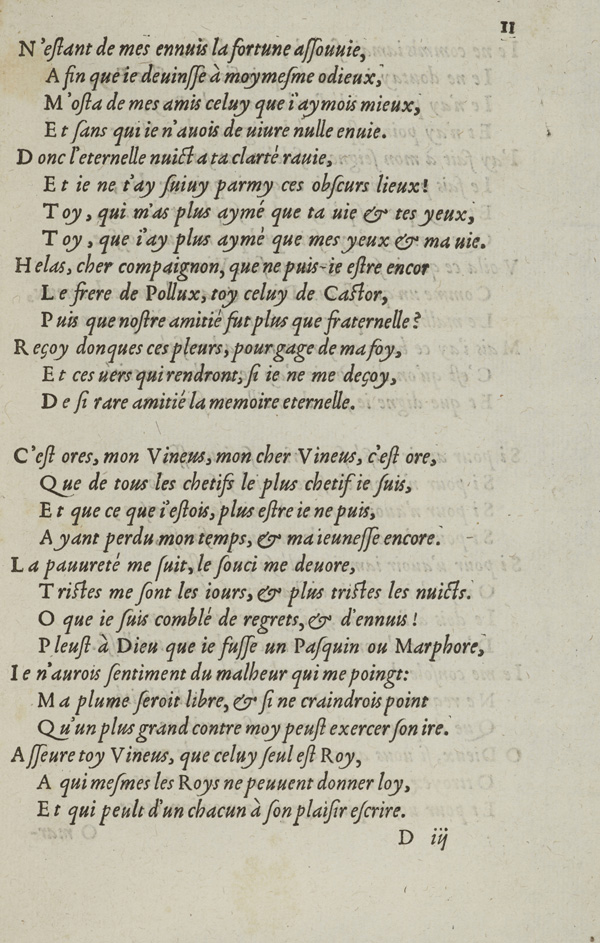 11
N'eſtant de mes ennuis la fortune aſſouuie,
A fin que ie deuinſſe à moymeſme odieux,
M'oſta de mes amis celuy que i'aymois mieux,
Et ſans qui ie n'auois de uiure nulle enuie.
Donc l'eternelle nuict a ta clarté rauie,
Et ie ne t'ay ſuiuy parmy ces obſcurs lieux!
Toy, qui m'as plus aymé que ta uie & tes yeux,
Toy, que i'ay plus aymé que mes yeux & ma uie.
Helas, cher compaignon, que ne puis-ie eſtre encor
Le frere de Pollux, toy celuy de Caſtor,
Puis que noſtre amitié fut plus que fraternelle?
Reçoy donques ces pleurs, pour gage de ma foy,
Et ces uers qui rendront, ſi ie ne me deçoy,
De ſi rare amitié la memoire eternelle.
C'eſt ores, mon Vineus, mon cher Vineus, c'eſt ore,
Que de tous les chetifs le plus chetif ie ſuis,
Et que ce que i'eſtois, plus eſtre ie ne puis,
Ayant perdu mon temps, & ma ieuneſſe encore.
La pauureté me ſuit, le ſouci me deuore,
Triſtes me ſont les iours, & plus triſtes les nuicts.
O que ie ſuis comblé de regrets, & d'ennuis!
Pleuſt à Dieu que ie fuſſe un Paſquin ou Marphore,
Ie n'aurois ſentiment du malheur qui me poingt:
Ma plume ſeroit libre, & ſi ne craindrois point
Qu'un plus grand contre moy peuſt exercer ſon ire.
Aſſeure toy Vineus, que celuy ſeul eſt Roy,
A qui meſmes les Roys ne peuuent donner loy,
Et qui peult d'un chacun à ſon plaiſir eſcrire.
D iij